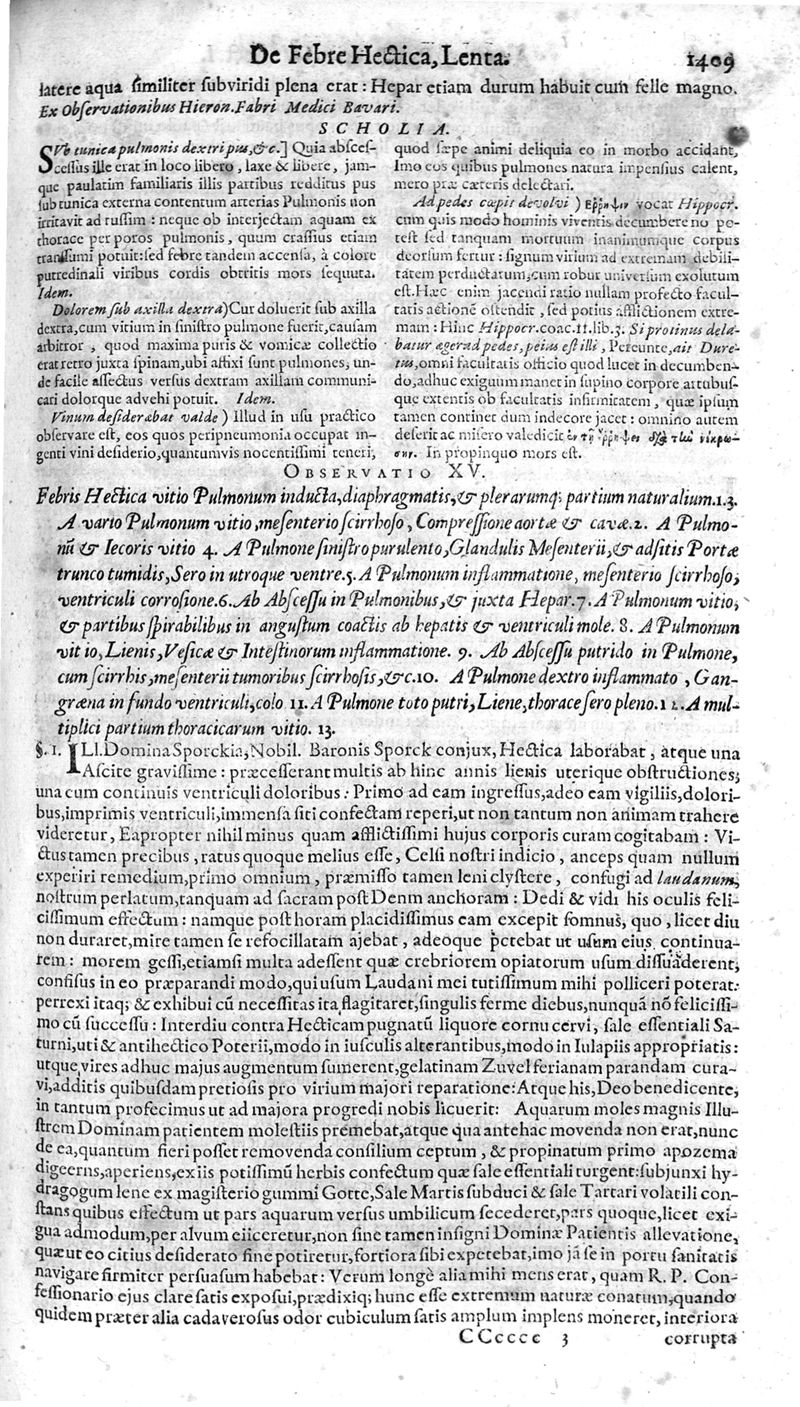 De Febre Hectica, Lenta.
1409
latere aqua similiter subviridi plena erat : Hepar etiam durum habuit cum felle magno.
Ex Observationibus Hieron. Fabri Medici Bavari.
SCHOLIA.
SVb tunica pulmonis dextri pus, &c.] Quia absces-
cessus ille erat in loco libero, laxe & libere, jam-
que paulatim familiaris illis partibus redditus pus
sub tunica externa contentum arterias Pulmonis non
irritavit ad tussim : neque ob interjectam aquam ex
thorace per poros pulmonis, quum crassius etiam
transsumi potuit: sed febre tandem accensa, à colore
putredinali viribus cordis obtritis mors sequuta.
Idem.
Dolorem sub axilla dextra) Cur doluerit sub axilla
dextra, cum vitium in sinistro pulmone fuerit, causam
arbitror, quod maxima puris & vomicæ collectio
erat retro juxta spinam, ubi affixi sunt pulmones, un-
de facile affectus versus dextram axillam communi-
cari dolorque advehi potuit. Idem.
Vinum desiderabat valde ) Illud in usu practico
observare est, eos quos peripneumonia occupat in-
genti vini desiderio, quantumvis nocentissimi teneri,
quod sæpe animi deliquia eo in morbo accidant,
Imo eos quibus pulmones natura impensius calent,
mero præ cæteris delectari.
Ad pedes cœpit devolvi ) vocat Hippocr.
cum quis modo hominis viventis decumbere no po-
test sed tanquam mortuum inanimumque corpus
deorsum fertur : signum virium ad extremam debili-
tatem perductarum, cum robur universum exolutum
est. Hæc enim jacendi ratio nullam profecto facul-
tatis actionē ostendit, sed potius afflictionem extre-
mam : Hinc Hippocr. coac. 11. lib. 3. Si protinus dela-
batur æger ad pedes, pejus est illi, Pereunte, ait Dure-
tus, omni facultatis officio quod lucet in decumben-
do, adhuc exiguum manet in supino corpore artubus-
que extentis ob facultatis infirmitatem, quæ ipsum
tamen continet dum indecore jacet : omnino autem
deserit ac misero valedicit
In propinquo mors est.
OBSERVATIO XV.
Febris Hectica vitio Pulmonum inducta, diaphragmatis, & plerarumq; partium naturalium. 1. 3.
A vario Pulmonum vitio, mesenterio scirrhoso, Compressione aortæ & cavæ. 2. A Pulmo-
nū & Iecoris vitio 4. A Pulmone sinistro purulento, Glandulis Mesenterii, & adsitis Portæ
trunco tumidis, Sero in utroque ventre. 5. A Pulmonum inflammatione, mesenterio scirrhoso,
ventriculi corrosione. 6. Ab Abscessu in Pulmonibus, & juxta Hepar. 7. A Pulmonum vitio,
& partibus spirabilibus in angustum coactis ab hepatis & ventriculi mole. 8. A Pulmonum
vitio, Lienis, Vesicæ & Intestinorum inflammatione. 9. Ab Abscessu putrido in Pulmone,
cum scirrhis, mesenterii tumoribus scirrhosis, &c. 10. A Pulmone dextro inflammato, Gan-
græna in fundo ventriculi, colo 11. A Pulmone toto putri, Liene, thorace sero pleno. 12. A mul-
tiplici partium thoracicarum vitio. 13.
§. 1. ILl. Domina Sporckia, Nobil. Baronis Sporck conjux, Hectica laborabat, atque una
Ascite gravissime : præcesserant multis ab hinc annis lienis uterique obstructiones;
una cum continuis ventriculi doloribus : Primo ad eam ingressus, adeo eam vigiliis, dolori-
bus, imprimis ventriculi, immensa siti confectam reperi, ut non tantum non animam trahere
videretur, Eapropter nihil minus quam afflictissimi hujus corporis curam cogitabam : Vi-
ctus tamen precibus, ratus quoque melius esse, Celsi nostri indicio, anceps quam nullum
experiri remedium, primo omnium, præmisso tamen leni clystere, confugi ad laudanum,
nostrum perlatum, tanquam ad sacram post Denm anchoram : Dedi & vidi his oculis feli-
cissimum effectum : namque post horam placidissimus eam excepit somnus, quo, licet diu
non duraret, mire tamen se refocillatam ajebat, adeoque petebat ut usum eius continua-
rem : morem gessi, etiamsi multa adessent quæ crebriorem opiatorum usum dissuaderent,
confisus in eo præparandi modo, qui usum Laudani mei tutissimum mihi polliceri poterat:
perrexi itaq; & exhibui cū necessitas ita flagitaret, singulis ferme diebus, nunquā nō felicissi-
mo cū successu : Interdiu contra Hecticam pugnatū liquore cornu cervi, sale essentiali Sa-
turni, uti & antihectico Poterii, modo in iusculis alterantibus, modo in Iulapiis appropriatis :
utque vires adhuc majus augmentum sumerent, gelatinam Zuvelferianam parandam cura-
vi, additis quibusdam pretiosis pro virium majori reparatione: Atque his, Deo benedicente,
in tantum profecimus ut ad majora progredi nobis licuerit: Aquarum moles magnis Illu-
strem Dominam patientem molestiis premebat, atque qua antehac movenda non erat, nunc
de ea, quantum fieri posset removenda consilium ceptum, & propinatum primo apozema
digeerns, aperiens, ex iis potissimū herbis confectum quæ sale essentiali turgent: subjunxi hy-
dragogum lene ex magisterio gummi Gotte, Sale Martis subduci & sale Tartari volatili con-
stans quibus effectum ut pars aquarum versus umbilicum secederet, pars quoque, licet exi-
gua admodum, per alvum eiiceretur, non sine tamen insigni Dominæ Patientis allevatione,
quæ ut eo citius desiderato fine potiretur, fortiora sibi expetebat, imo jā se in portu sanitatis
navigare firmiter persuasum habebat : Verum longè alia mihi mens erat, quam R. P. Con-
fessionario ejus clare satis exposui, prædixiq; hunc esse extremum naturæ conatum, quando
quidem præter alia cadaverosus odor cubiculum satis amplum implens moneret, interiora
CCcccc 3
corrupta